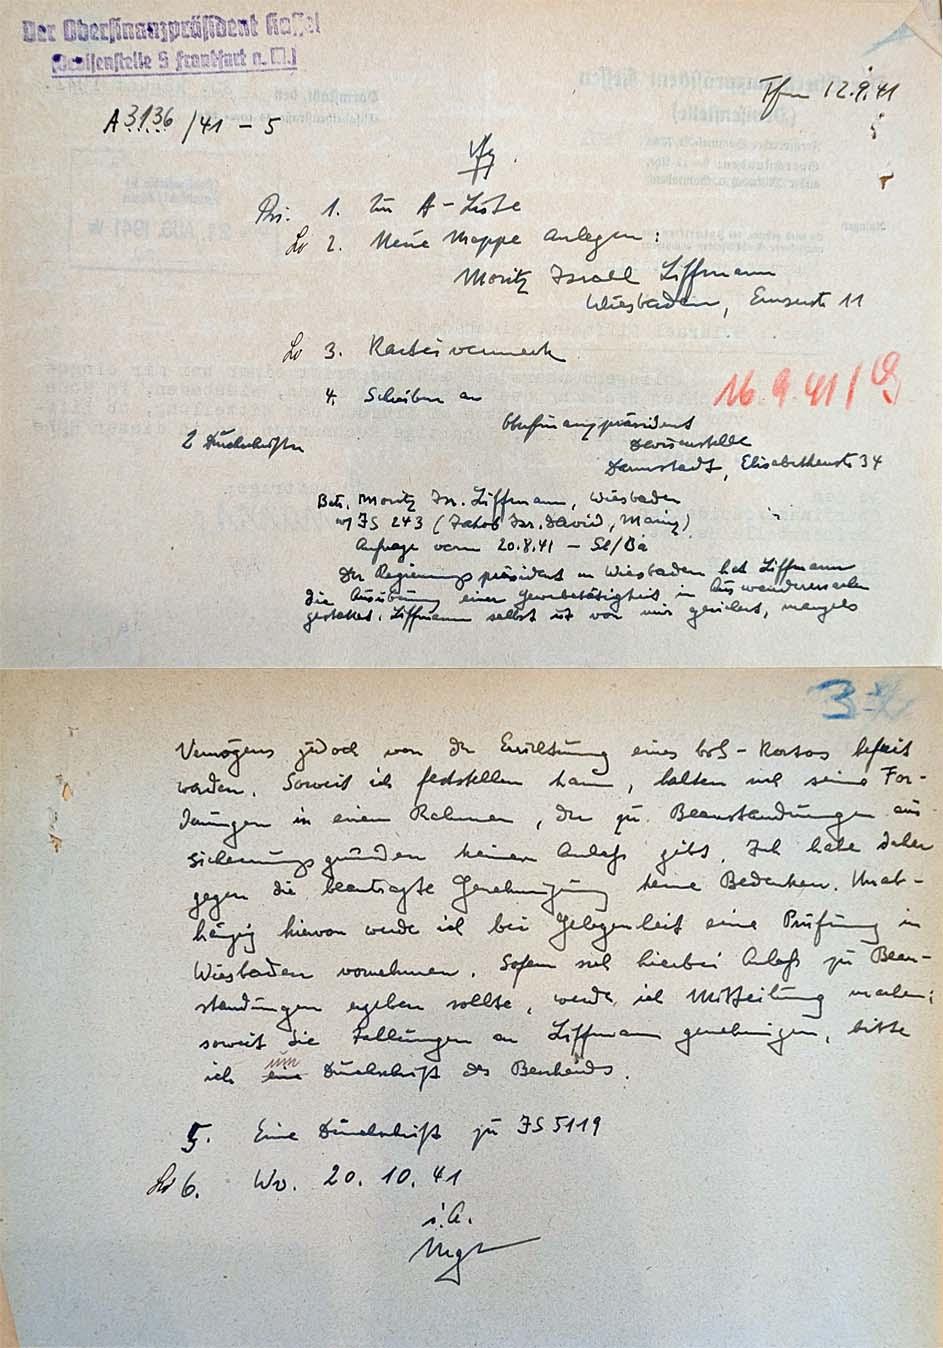 Der Oberfinanzpräsident Kassel
(Devisenstelle S Frankfurt a. M.)
Ffm 12.9.41
A 3136 /41 - 5
Vfg.
1. Zur A-Liste
2. Neue Mappe anlegen:
Moritz Israel Liffmann
Wiesbaden, Emserstr 11
3. Karteivermerk
16.9.41
4. Schreiben an
Oberfinanzpräsident
Devisenstelle
2 Durchschriften
Darmstadt, Elisabethenstr 34
Betr. Moritz Isr. Liffmann, Wiesbaden
JS 243 (Jakob Isr. David, Mainz)
Anfrage vom 20.8.41 -
Der Regierungspräsident in Wiesbaden hat Liffmann
die Ausübung einer Gewerbetätigkeit in Auswanderersachen
gestattet. Liffmann selbst ist von mir gesichert, mangels
3
Vermögens jedoch von der Errichtung eines bvS-Kontos befreit
worden. Soweit ich feststellen kann, halten sich seine For-
derungen in einem Rahmen, der zu Beanstandungen aus
Sicherungsgründen keinen Anlaß gibt. Ich habe daher
gegen die beantragte Genehmigung keine Bedenken. Unab-
hängig hiervon werde ich bei Gelegenheit eine Prüfung in
Wiesbaden vornehmen. Sofern sich hierbei Anlaß zu Bean-
standungen ergeben sollte, werde ich Mitteilung machen;
soweit Sie Zahlungen an Liffmann genehmigen, bitte
ich um eine Durchschrift des Bescheids.
5. Eine Durchschrift zu JS 5119
6. Wv. 20.10.41
i.A.